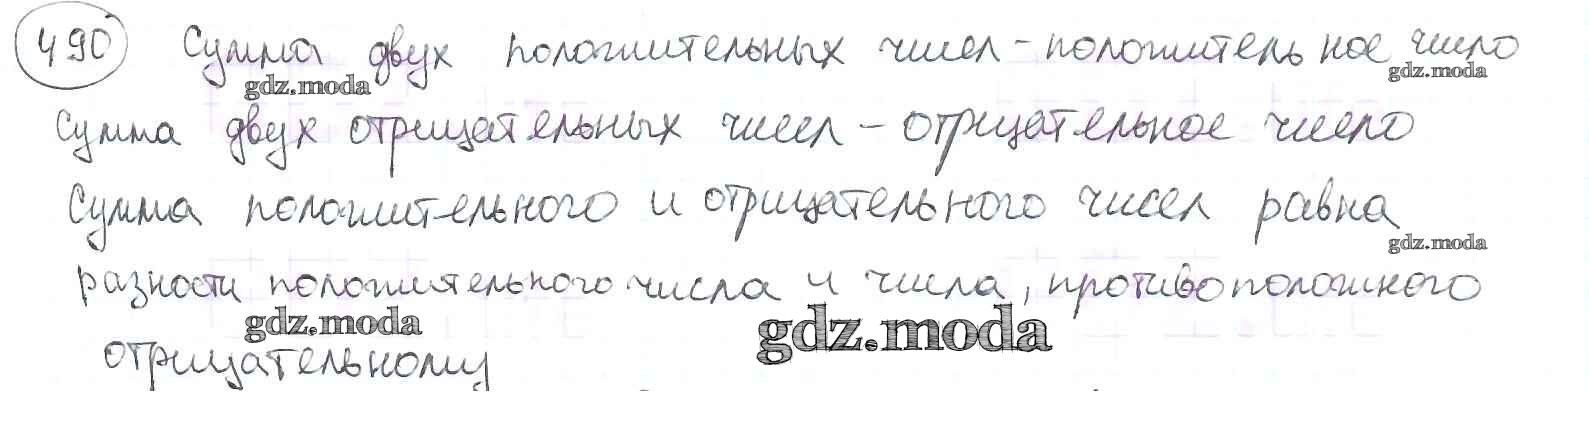 490 Сумма двух положительных чисел - положительное число
gdz.moda gdz.moda
Сумма двух отрицательных чисел - отрицательное число
Сумма положительного и отрицательного чисел равна
gdz.moda
разности положительного числа и числа, противоположного
gdz.moda gdz.moda
отрицательному